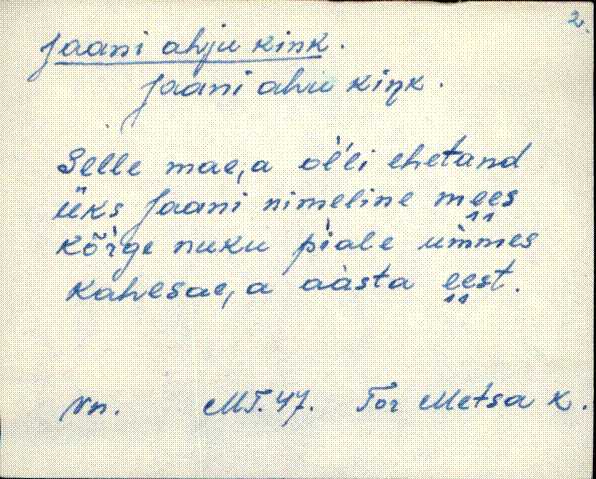 2.
Jaani ahju kink.
Jaani ahu kiŋk.
Selle mae,a oĺli ehetand
üks Jaani nimeline mees
kõ̀rge nuku pìale ùmmes
kahesae,a aàsta eest.
Vn. MT.47. Tor Metsa k.